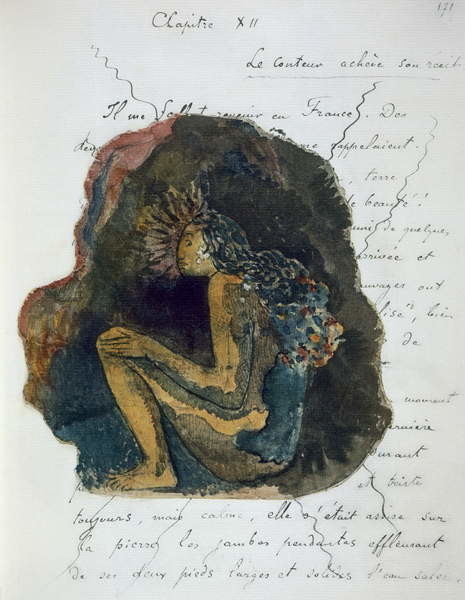 171
Chapitre XII
Le Conteur achève son récit
Il me fallut revenir en France. Des
rappelaient.
terre
de beauté!
de quelques
arrivée et
ouvrages ont
bien
de
moment
dernière
durant
et triste
toujours, mais calme, elle s'était assise sur
la pierre, les jambes pendantes effleurant
de ses deux pieds larges et solides l'eau salée.